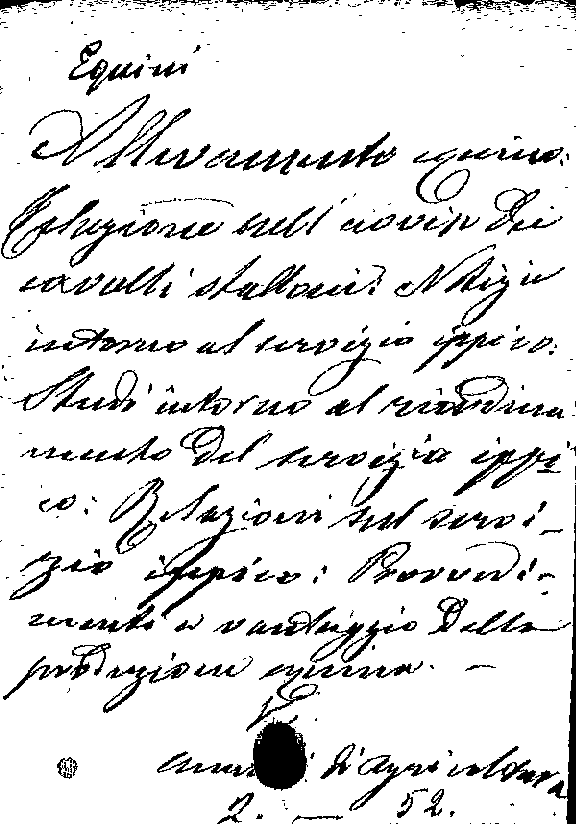 Equini
Allevamento equino:
Relazione sull' acquisto dei
cavalli stalloni: Notizie
intorno al servizio ippico:
Studi intorno al riordina
mento del servizio ippi
co: Relazioni sul servi-
zio ippico: Provvedi-
menti a vantaggio della
produzione equina. —
V.
Annali di Agricoltura
2. — 52.